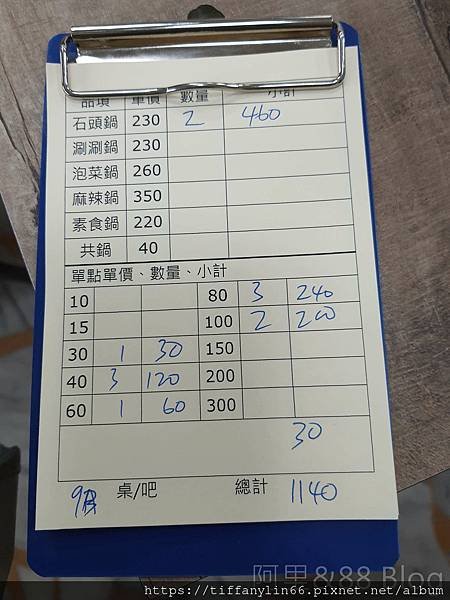 品項 單價 數量 小計
石頭鍋 230 2 460
涮涮鍋 230
泡菜鍋 260
麻辣鍋 350
素食鍋 220
共鍋 40
單點單價、數量、小計
10 80 3 240
15 100 2 200
30 1 30 150
40 3 120 200
60 1 60 300
30
桌/吧 總計 1140
阿里&88 Blog
https://tiffanylin66.pixnet.net/album